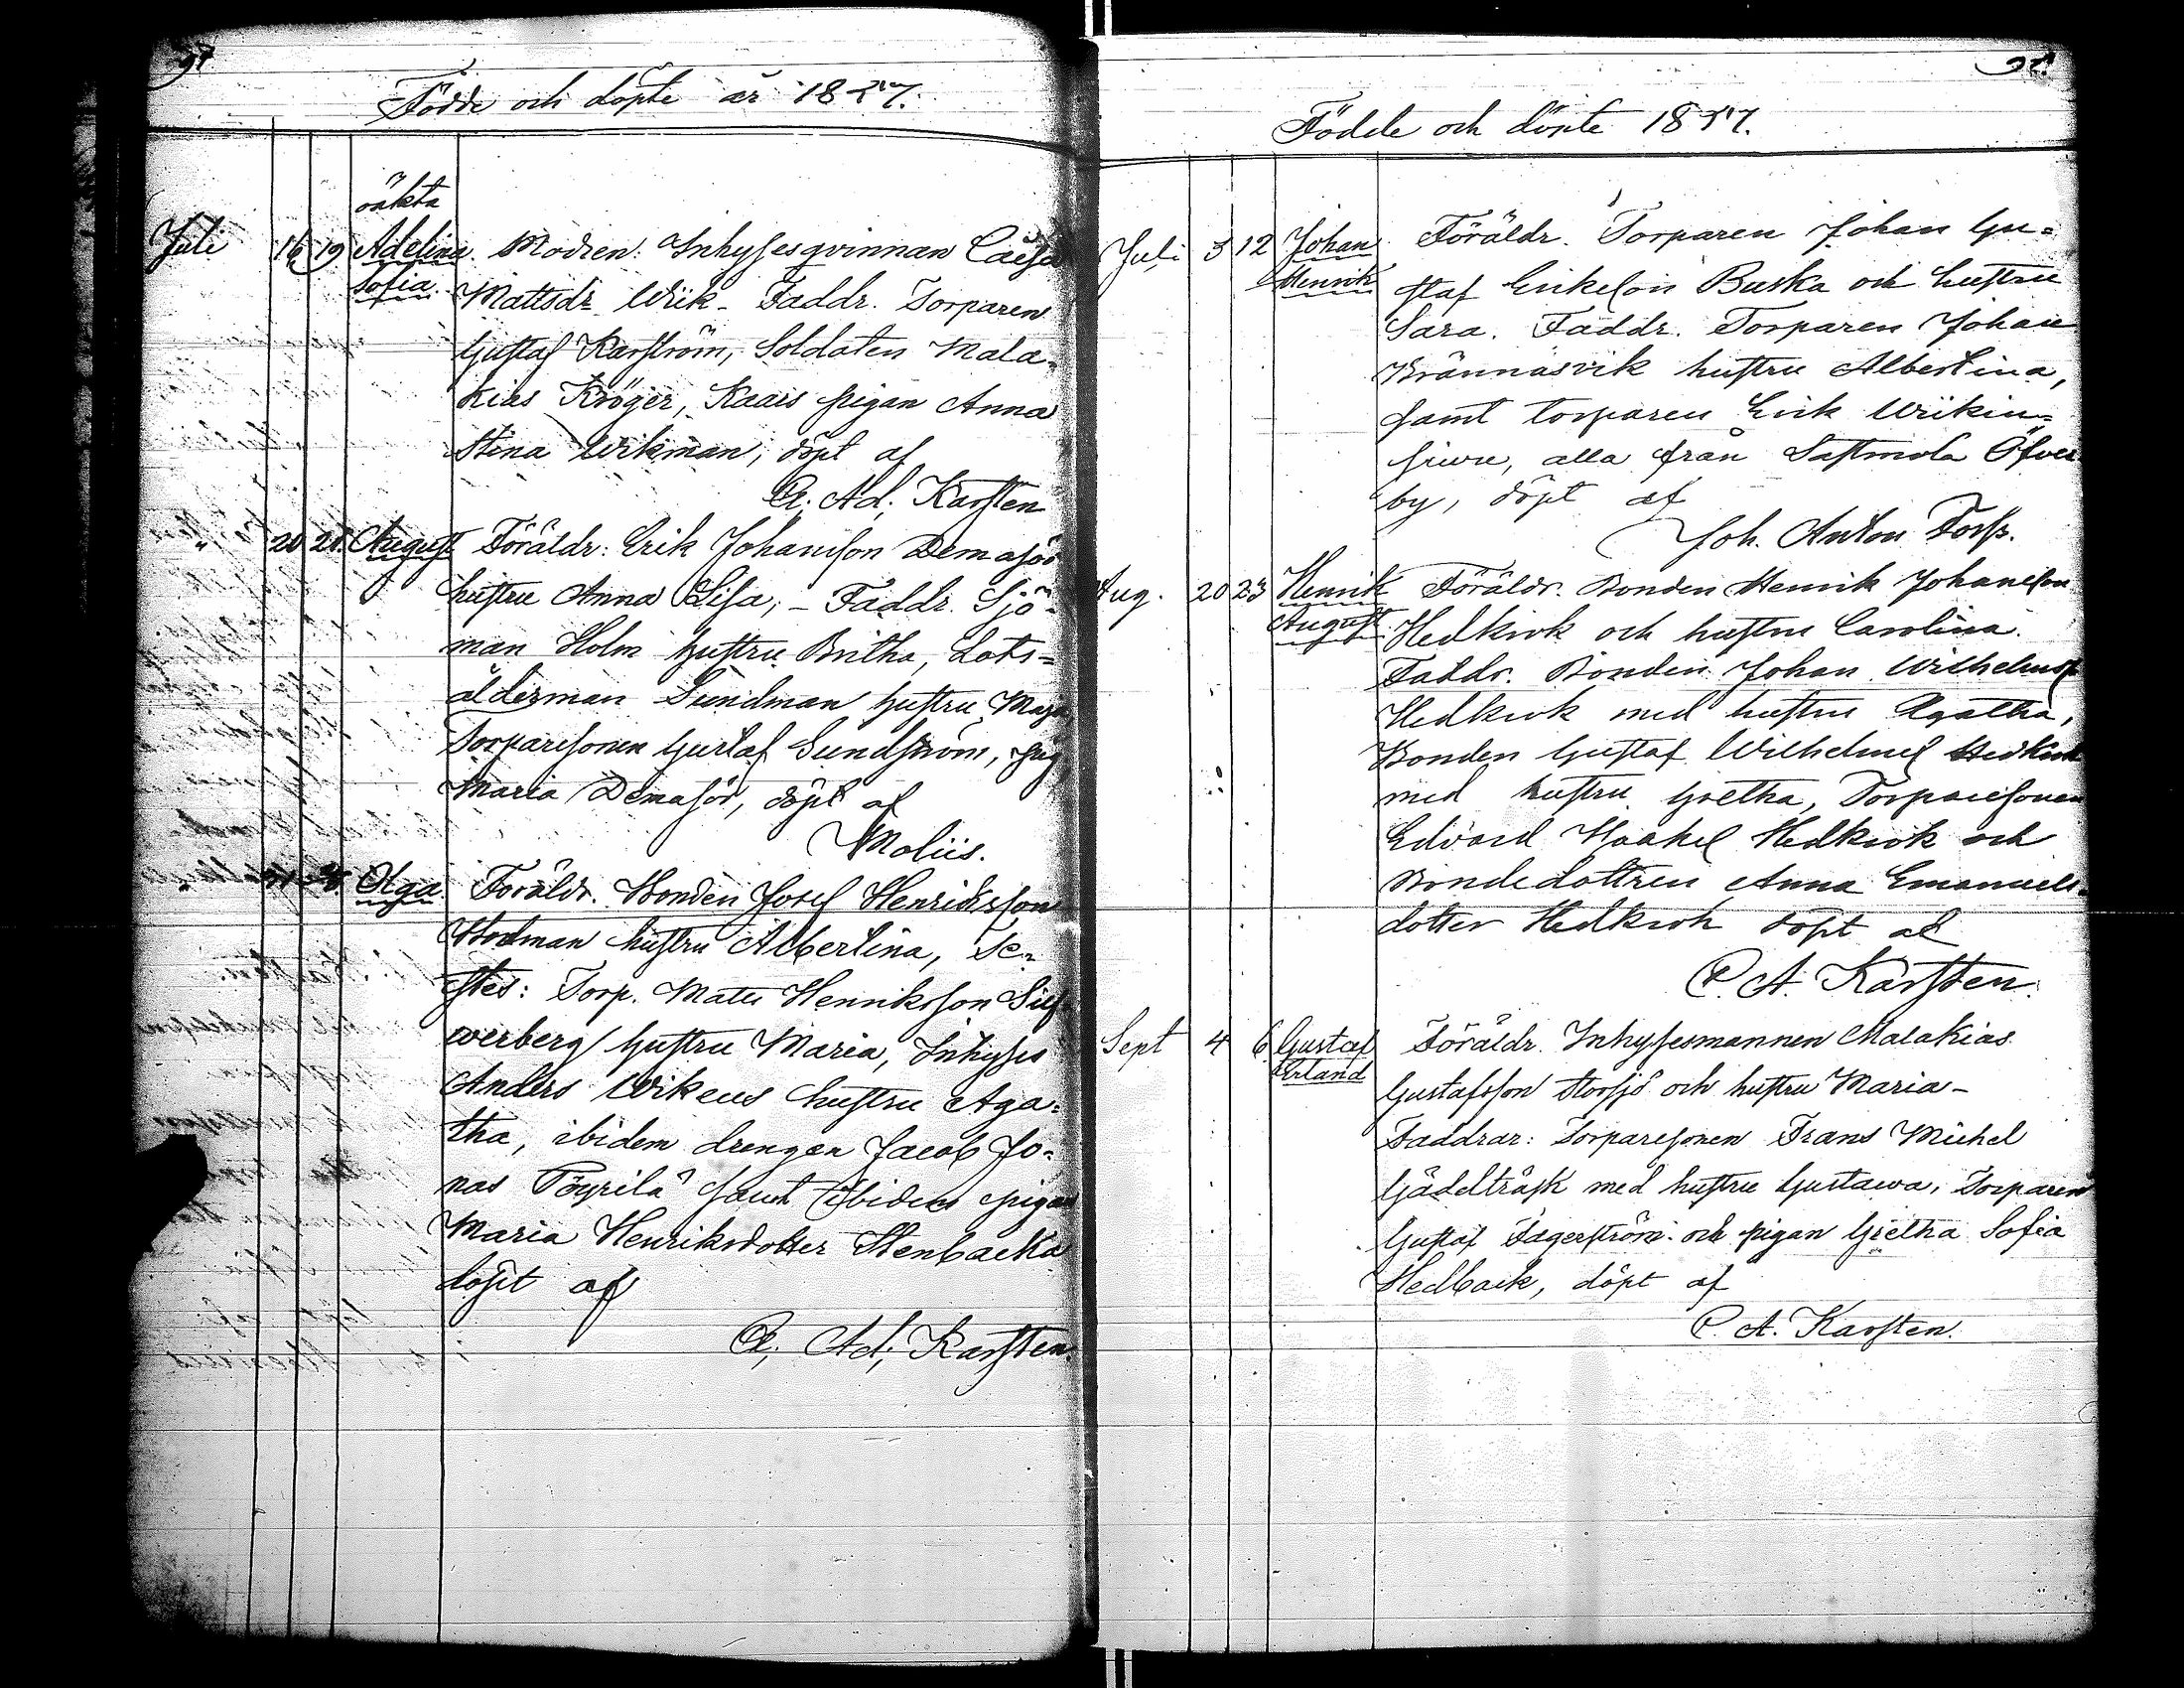 97
Födde och döpte år 1857.
oäkta
Juli 16 19 Adelina Modren: Inhysesqvinnan Caisa
Sofia. Mattsdr Wiik – Faddr. Torparen
Gustaf Karström, Soldaten Mala-
kias Kröger, Kaais pigan Anna
Stina Wikman, döpt af
C. Ad. Karsten
" 20 28 August Föräldr: Erik Johansson Demasör
hustru Anna Lisa, – Faddr. Sjö-
man Holm hustru Britha, Lots-
ålderman Sundman hustru Maja,
Torparesonen Gustaf Sundström, pig
Maria Demasör, döpt af
Moliis.
" Olga Föräldr. Bonden Josef Henriksson
Hodman hustru Albertina, Te-
stes: Torp. Mats Henriksson Silf-
werberg hustru Maria, Inhyses
Anders Wikeus hustru Aga-
tha, ibidem drengen Jacob Jo-
nas Pöyrilä samt ibidem pigan
Maria Henriksdotter Stenbacka
döpt af
C. Ad. Karsten.
Födde och döpte 1857.
Juli 3 12 Johan Föräldr. Torparen Johan Gu-
Henrik staf Eriksson Buska och hustru
Sara. Faddr. Torparen Johan
Brännäsvik hustru Albertina,
samt torparen Erik Wiikin-
siwu, alla från Sastmola Öfver
by, döpt af
Joh. Anton Forss.
Aug. 20 23 Henrik Föräldr. Bonden Henrik Johansson
August Hedkrok och hustru Carolina.
Faddr. Bonden Johan Wilhelmss
Hedkrok med hustru Agatha,
Bonden Gustaf Wilhelmss Hedkrok
med hustru Gretha, Torparesonen
Edvard Haakel Hedkrok och
Bondedottren Anna Emanuels-
dotter Hedkrok döpt af
C. A. Karsten.
Sept 4 6 Gustaf Föräldr. Inhysesmannen Malakias
Erland Gustafsson Storsjö och hustru Maria –
Faddrar: Torparesonen Frans Michel
Gäddträsk med hustru Gustawa, Torparen
Gustaf Fagerström och pigan Gretha Sofia
Hedback, döpt af
C. A. Karsten.